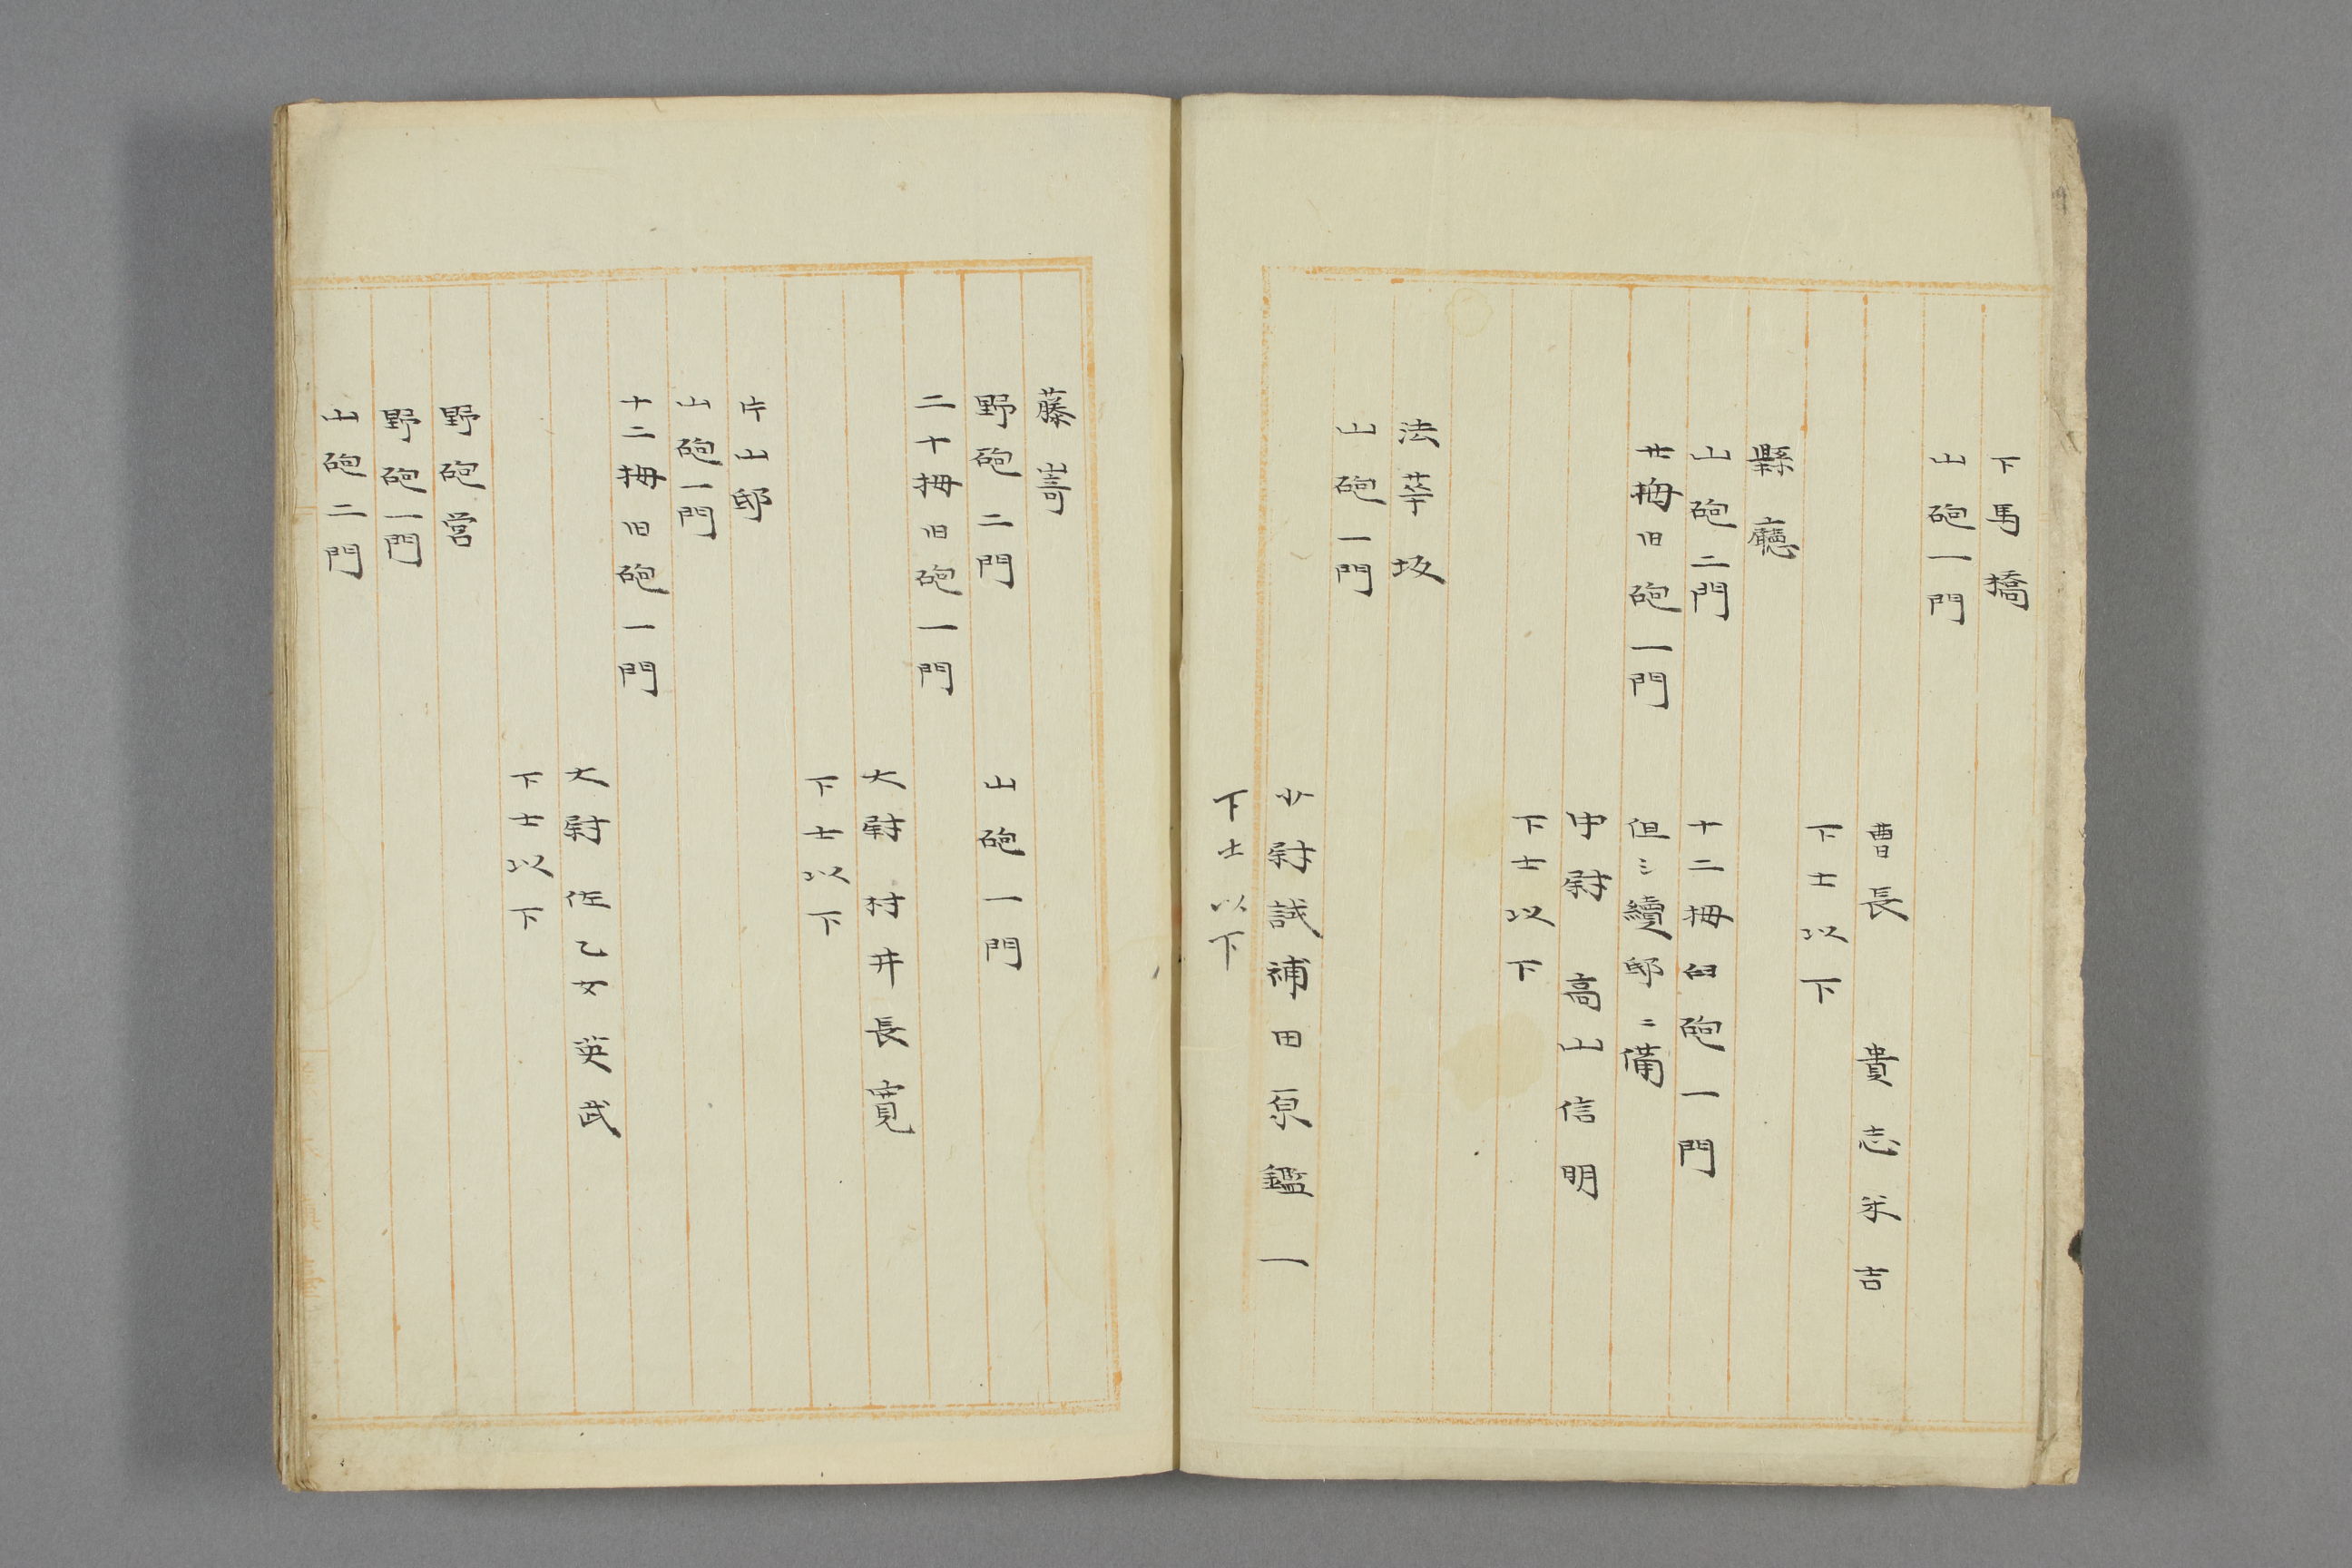 下馬橋
山砲一門
曹長　貴志米吉
下士以下
縣廳
山砲二門　十二拇臼砲一門
廿拇臼砲一門　但ミ續邸ニ備
中尉　高山信明
下士以下
法華坂
山砲一門
少尉試補田原鑑一
下士以下
藤嵜
野砲二門　山砲一門
二十拇旧砲一門
大尉　村井長寛
下士以下
片山邸
山砲一門
十二拇旧砲一門
大尉　佐乙女英武
下士以下
野砲営
野砲一門
山砲二門